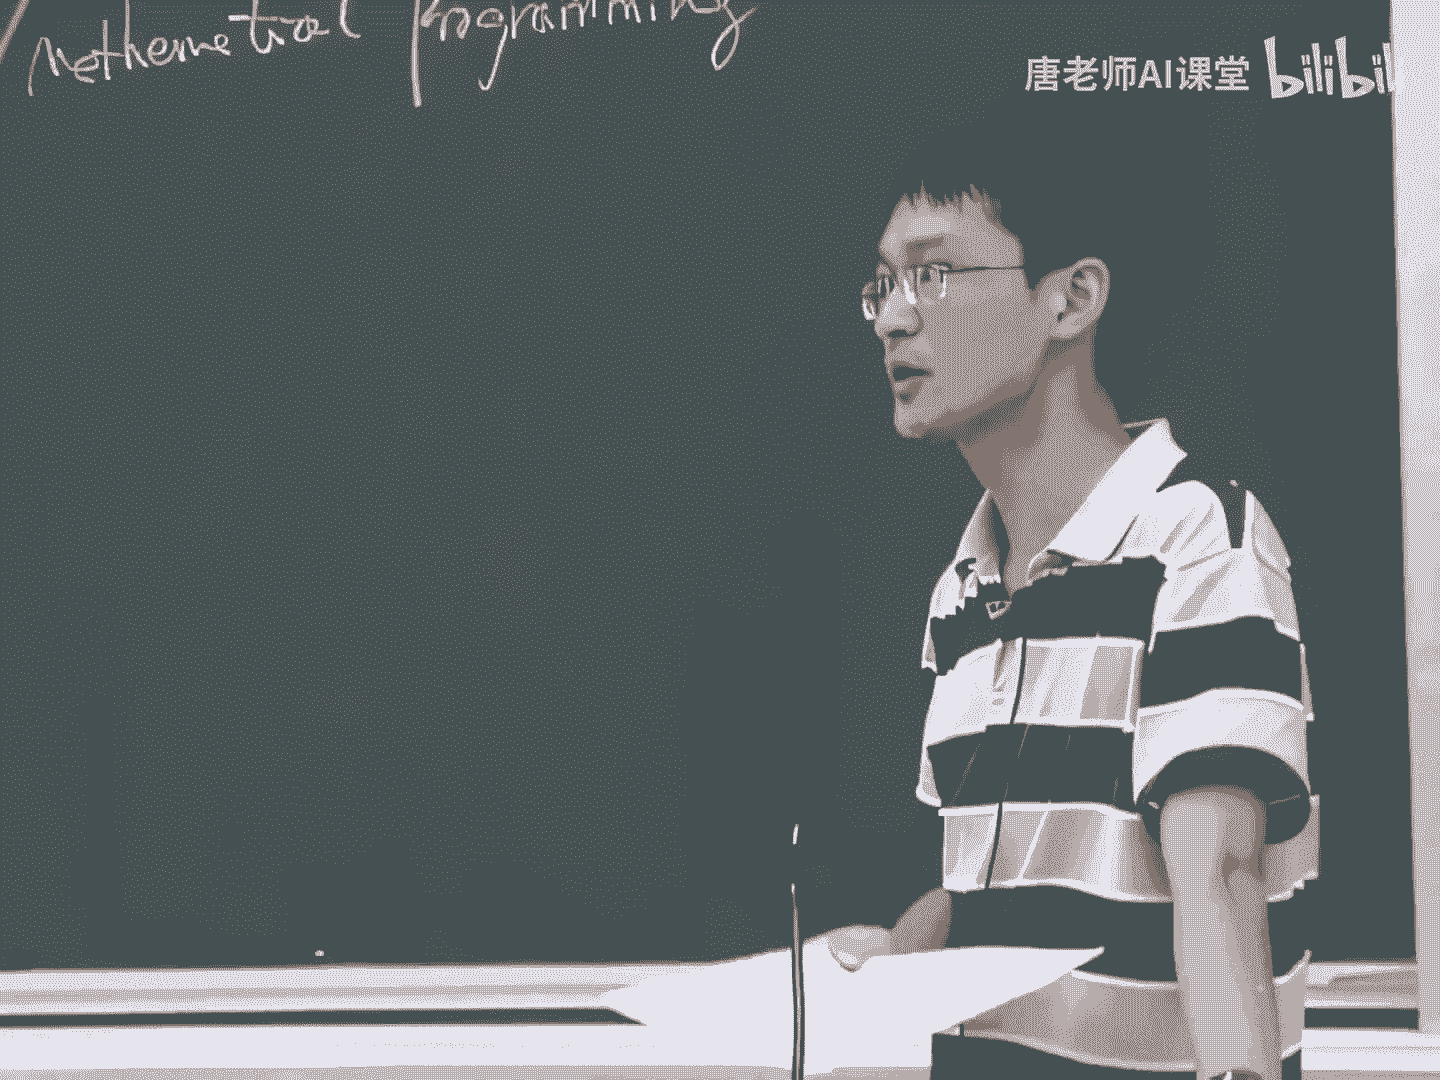 Mathematical Programming
唐老师AI课堂 bilibili